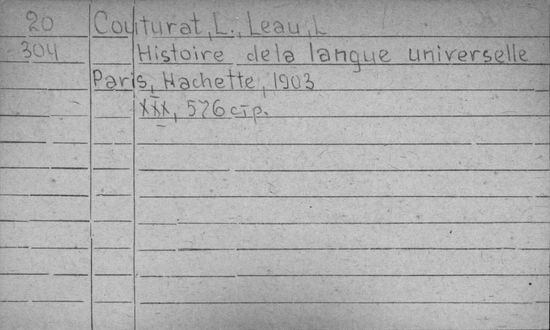 20 Couturat, L., Leau, L
304 Histoire dela langue universelle
Paris, Hachette, 1903
XXX, 576 стр.